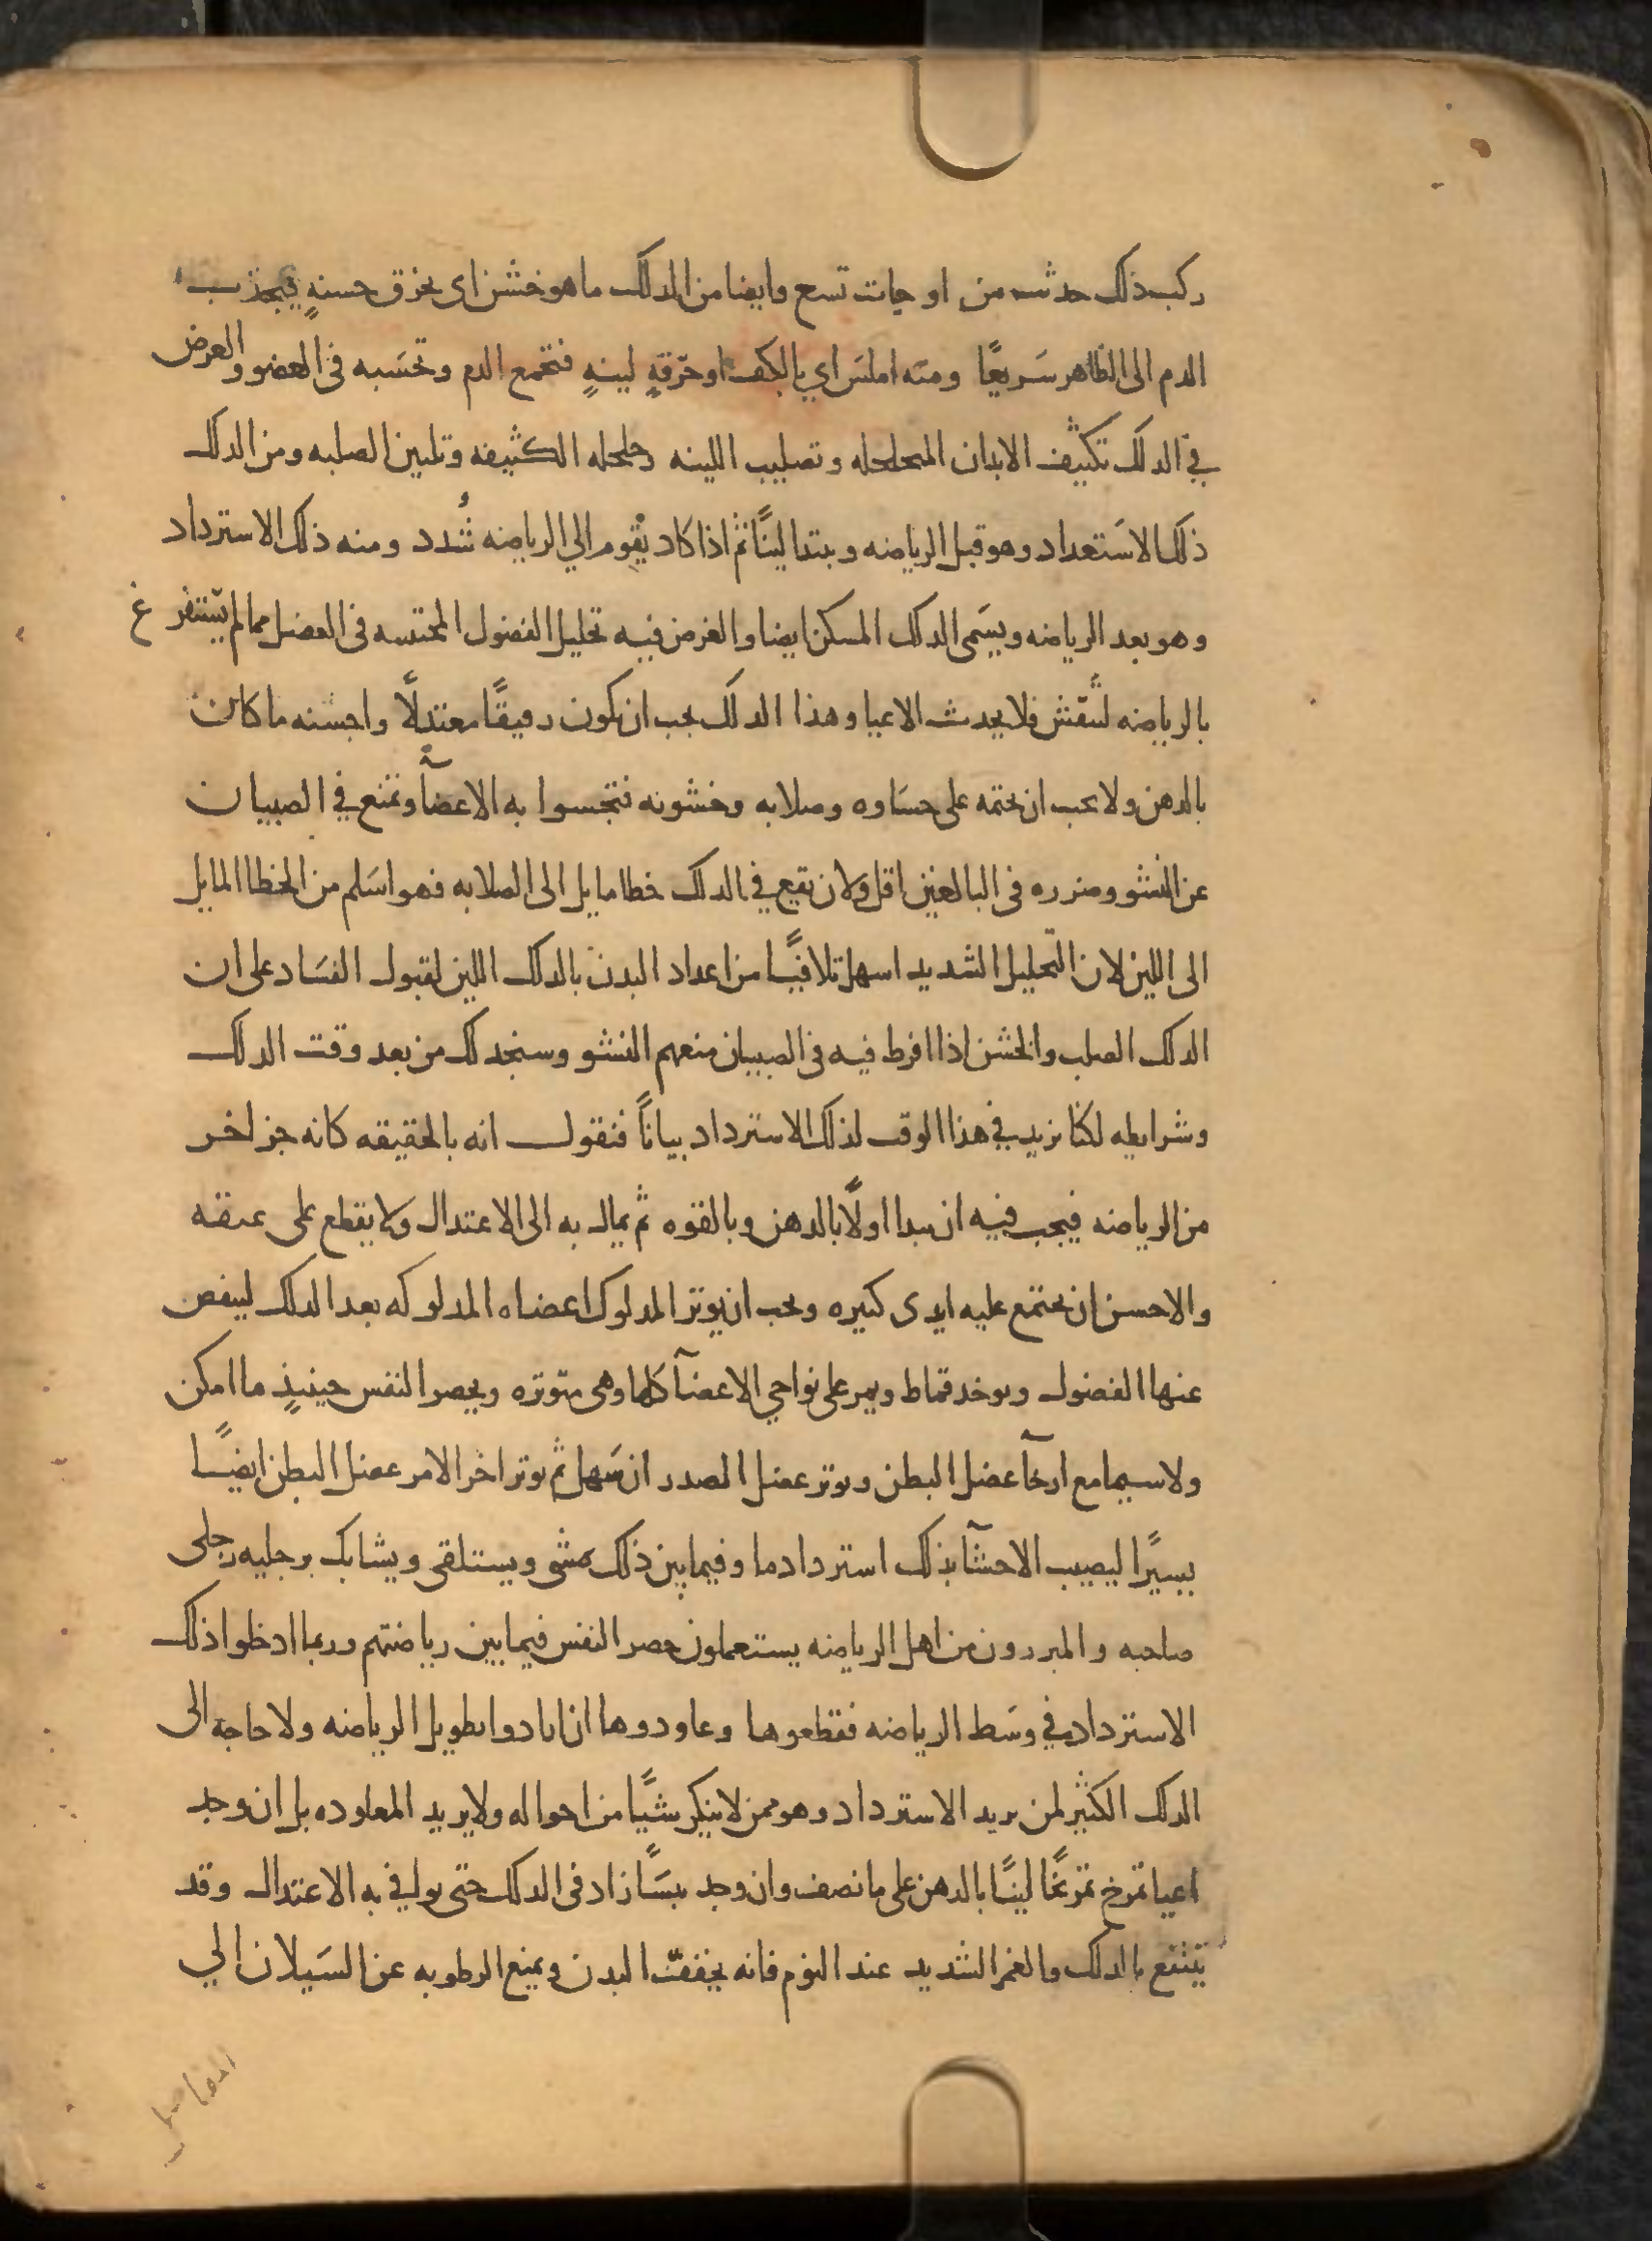 ركب ذلك حدثت من او جات تسع وايضا من الدلك ما هو خشن اي بخرق خشنه فيجذب
الدم الى الظاهر سريعًا ومنه املس اي بالكف او خرقةٍ لينةٍ فتجمع الدم وتحبسه في العضو والعرض
في الدلك تكثيف الابدان المتحلحله وتصليب اللينه وحلحله الكثيفه وتليين الصلبه ومن الدلك
دلك الاستعداد وهو قبل الرياضه ويبتدا لينًا ثم اذا كاد يقوم الي الرياضه شُدد ومنه دلك الاسترداد
وهو بعد الرياضه ويسمى الدلك المسكن ايضا والغرض فيه تحليل الفضول المحتبسه في العضل مما لم يستفرغ
بالرياضه لتنفش فلا يحدث الاعيا وهذا الدلك يجب ان يكون رفيقًا معتدلًا واحسنه ما كان
بالدهن ولا يجب ان يختمه على جساوه وصلابه وخشونه فتجسوا به الاعضآ وتمنع في الصبيان
عن النشو وضرره في البالغين اقل ولان يقع في الدلك خطا مايل الى الصلابه فهو اسلم من الخطا المايل
الى اللين لان التحليل الشديد اسهل تلافيًا من اعداد البدن بالدلك اللين لقبول الفساد على ان
الدلك الصلب والخشن اذا افرط فيه في الصبيان منعهم النشو وسنجد لك من بعد وقت الدلك
وشرايطه لكنا نزيد في هذا الوقت لدلك الاسترداد بيانًا فنقول انه بالحقيقه كانه جز اخر
من الرياضه فيجب فيه ان يبدا اولًا بالدهن وبالقوه ثم يمال به الى الاعتدال ولا يقطع على عنفه
والاحسن ان يجتمع عليه ايدي كثيره ويجب ان يوتر المدلوك اعضاه المدلوكه بعد الدلك لينفض
عنها الفضول ويوخد قماط ويمر على نواحي الاعضآ كلها وهي متوتره ويحصر النفس حينيذٍ ما امكن
ولا سيما مع ارخآ عضل البطن وتوتر عضل الصدر ان سهل ثم يوتر اخر الامر عضل البطن ايضًا
يسيرًا ليصيب الاحشآ بذلك استرداد ما وفيما بين ذلك يمشي ويستلقي ويشابك برجليه رجلي
صاحبه والمبررون من اهل الرياضه يستعملون حصر النفس فيما بين رياضتهم وربما ادخلوا دلك
الاسترداد في وسط الرياضه فقطعوها وعاودوها ان ارادوا تطويل الرياضه ولا حاجة الى
الدلك الكثير لمن يريد الاسترداد وهو ممن لا ينكر شيًا من احواله ولا يريد المعاوده بل ان وجد
اعيا تمرخ تمرخًا لينًا بالدهن على ما نصف وان وجد يبسًا زاد في الدلك حتى يوافي به الاعتدال وقد
ينتفع بالدلك والغمر الشديد عند النوم فانه يجفف البدن ويمنع الرطوبه عن السيلان الي
المفاصل